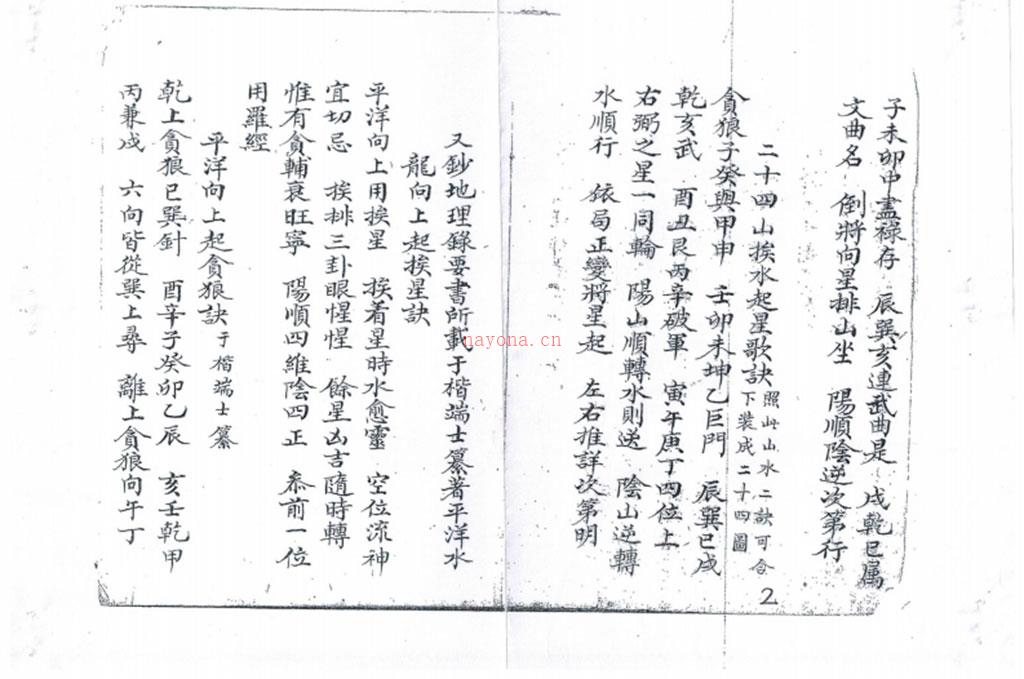 子未卯申盡祿存　辰巽亥連武曲是　戌乾巳属
文曲名　倒將向星排山坐　陽順陰逆次第行
二十四山挨水起星歌訣
照此山水二訣可合
下装成二十四圖
貪狼子癸與甲申　壬卯未坤乙巨門　辰巽巳戌
乾亥武　酉丑艮丙辛破軍　寅午庚丁四位上
右弼之星一同輪　陽山順轉水則逆　陰山逆轉
水順行　依局正變將星起　左右推詳次第明
2
又鈔地理錄要書所載于楷端士纂著平洋水
龍向上起挨星訣
平洋向上用挨星　挨着星時水愈靈　空位流神
宜切忌　挨排三卦眼惺惺　餘星凶吉隨時轉
惟有貪輔衰旺寧　陽順四維陰四正　叅前一位
用羅經
平洋向上起貪狼訣于楷端士纂
乾上貪狼巳巽針　酉辛子癸卯乙辰　亥壬乾甲
丙兼戌　六向皆從巽上尋　離上貪狼向午丁
nayona.cn